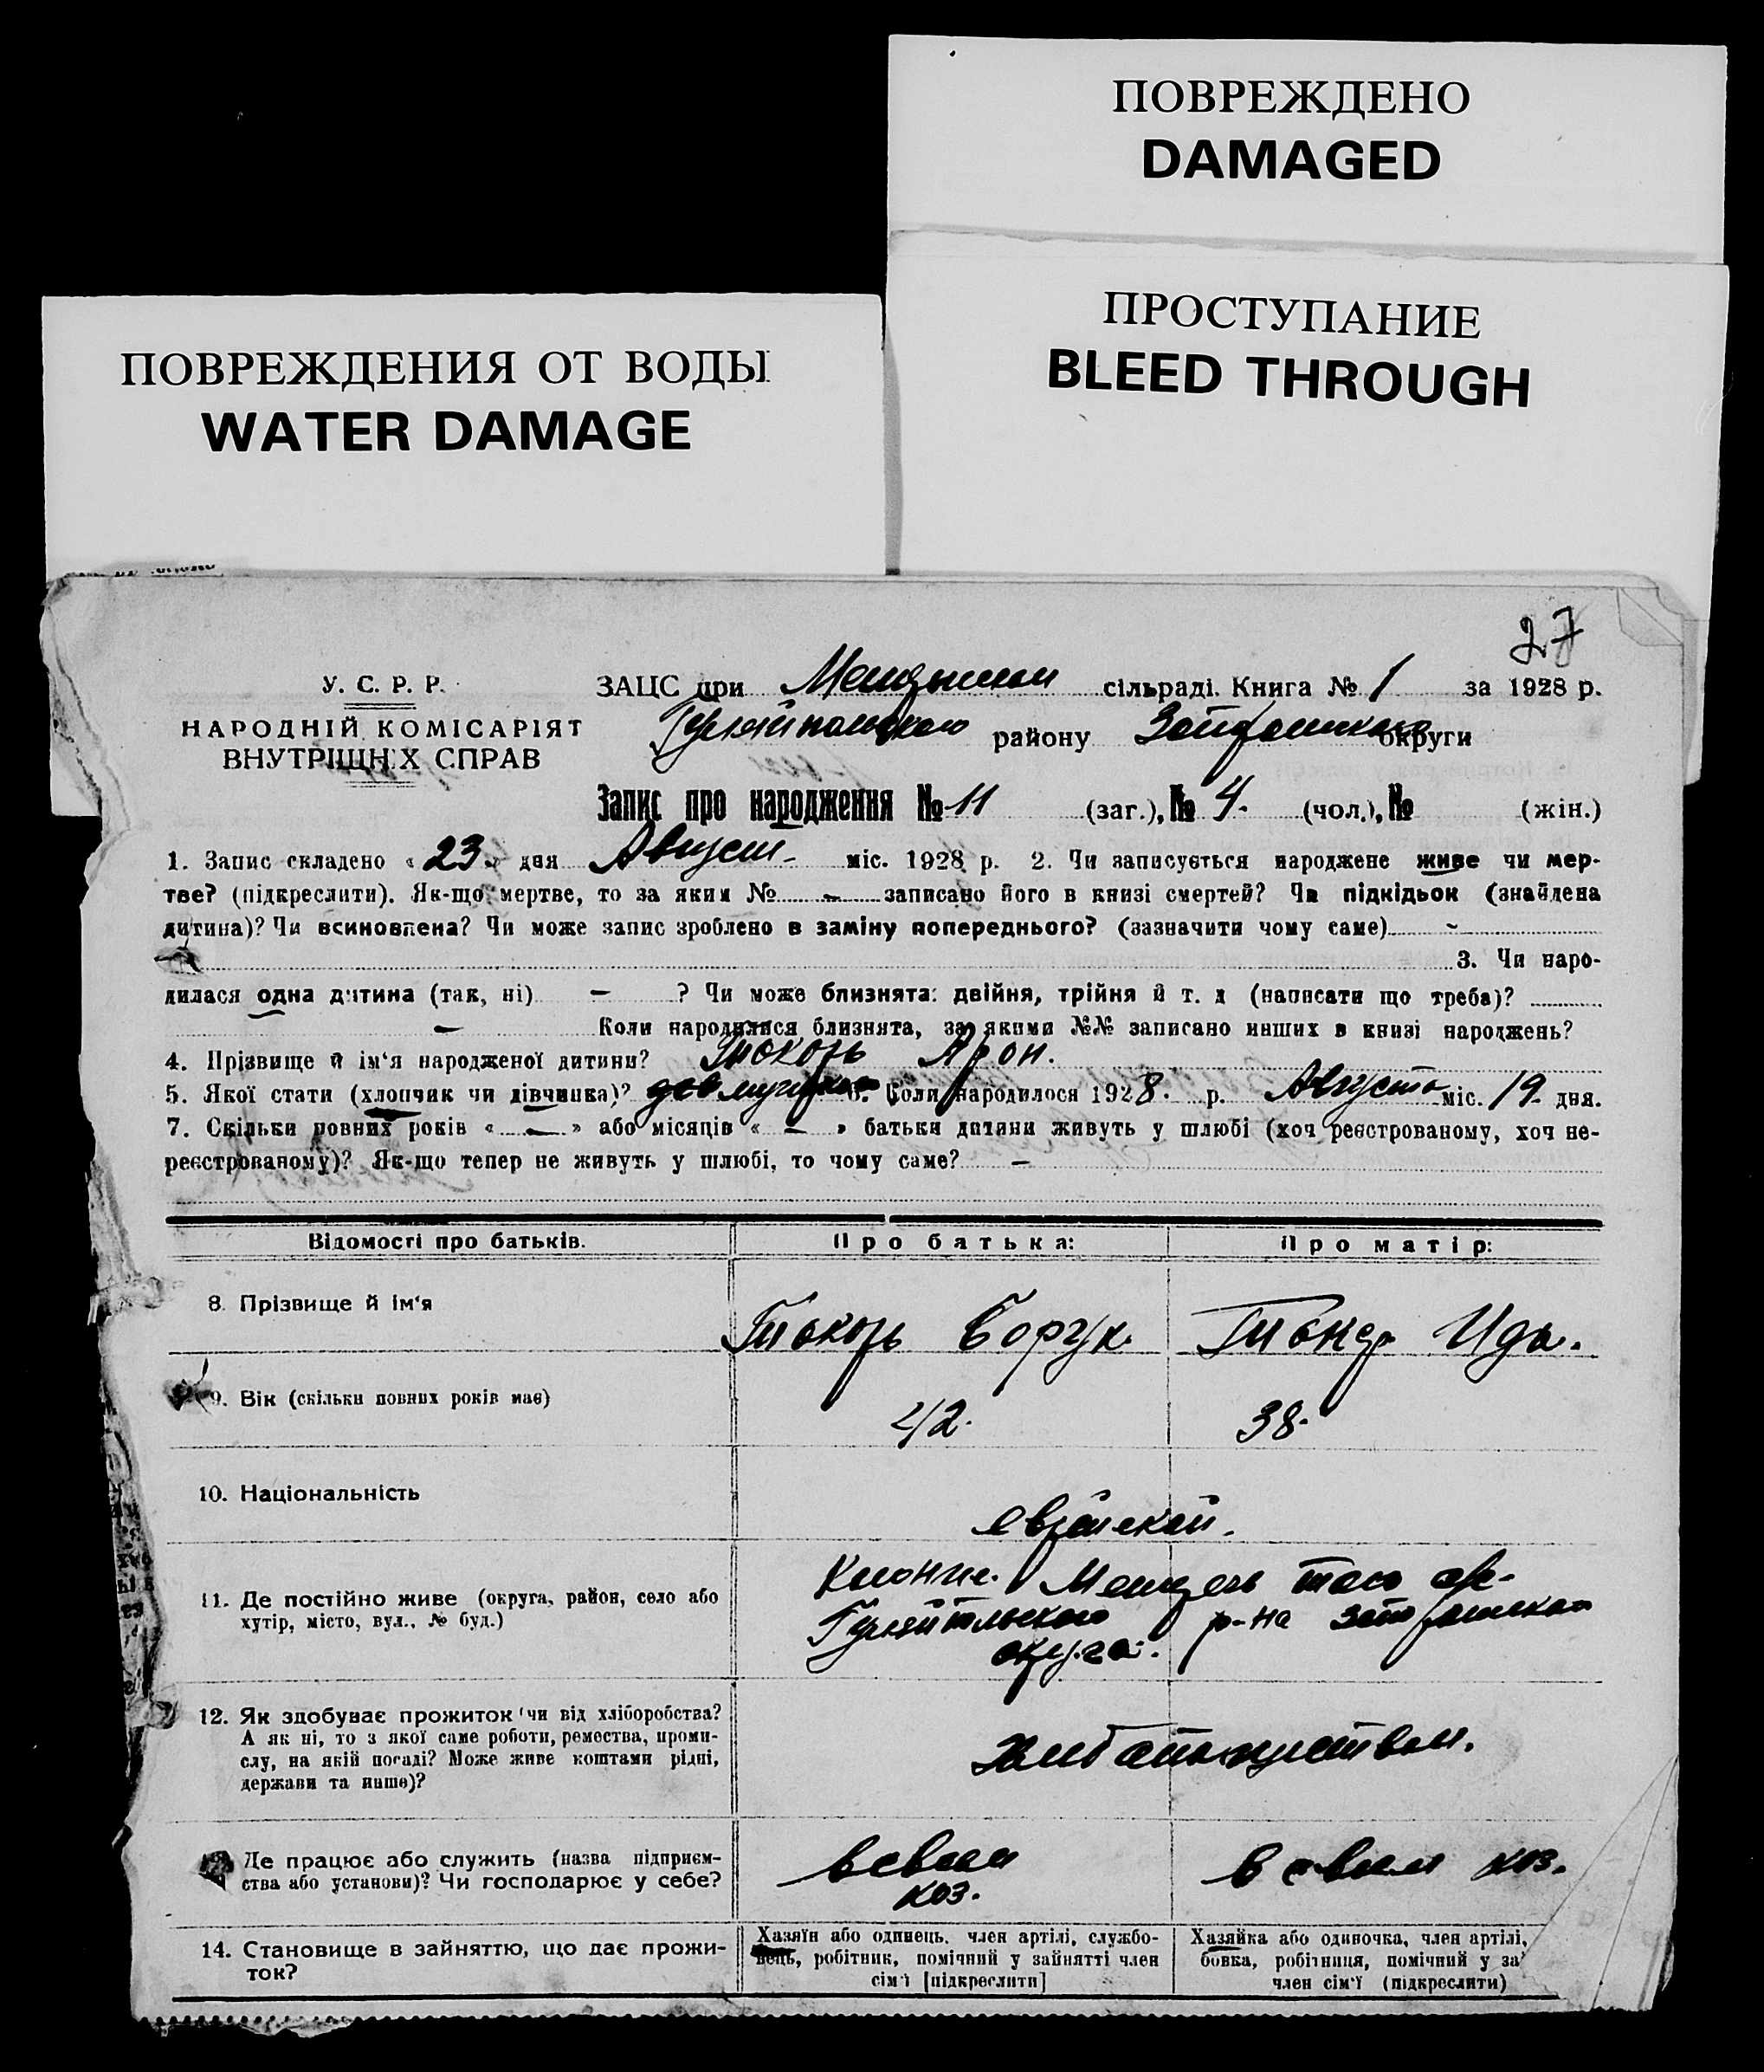 ПОВРЕЖДЕНО
DAMAGED
ПРОСТУПАНИЕ
BLEED THROUGH
ПОВРЕЖДЕНИЯ ОТ ВОДЫ
WATER DAMAGE
27
У. С. Р. Р.
НАРОДНІЙ КОМІСАРІЯТ
ВНУТРІШНІХ СПРАВ
ЗАЦС при сільраді. Книга № 1 за 1928 р.
району округи
Запис про народження № 11 (заг.), № 4. (чол.), № (жін.)
1. Запис складено « 23 » дня Август міс. 1928 р. 2. Чи записується народжене живе чи мер-
тве? (підкреслити). Як-що мертве, то за яким № - записано його в книзі смертей? Чи підкідьок (знайдена
дитина)? Чи всиновлена? Чи може запис зроблено в заміну попереднього? (зазначити чому саме) -
3. Чи наро-
дилася одна дитина (так, ні) - ? Чи може близнята: двійня, трійня й т. д (написати що треба)?
- Коли народилися близнята, за якими №№ записано инших в книзі народжень?
4. Прізвище й ім'я народженої дитини? Арон.
5. Якої стати (хлопчик чи дівчинка)? 6. Коли народилося 1928. р. Августа міс. 19. дня.
7. Скільки повних років « - » або місяців « - » батьки дитини живуть у шлюбі (хоч реєстрованому, хоч не-
реєстрованому)? Як-що тепер не живуть у шлюбі, то чому саме? -
Відомості про батьків. Про батька: Про матір:
8. Прізвище й ім'я Борух. Ида.
9. Вік (скільки повних років має) 42. 38.
10. Національність еврейской.
11. Де постійно живе (округа, район, село або
хутір, місто, вул., № буд.)
р-на
округа.
12. Як здобуває прожиток (чи від хліборобства?
А як ні, то з якої саме роботи, ремества, проми-
слу, на якій посаді? Може живе коштами рідні,
держави та инше)?
Де працює або служить (назва підприєм-
ства або установи)? Чи господарює у себе?
всвоем
хоз.
в своем хоз.
14. Становище в зайняттю, що дає прожи-
ток?
Хазяїн або одинець, член артілі, службо-
вець, робітник, помічний у зайнятті член
сім'ї [підкреслити]
Хазяйка або одиночка, член артілі,
бовка, робітниця, помічний у за
член сім'ї (підкреслити)